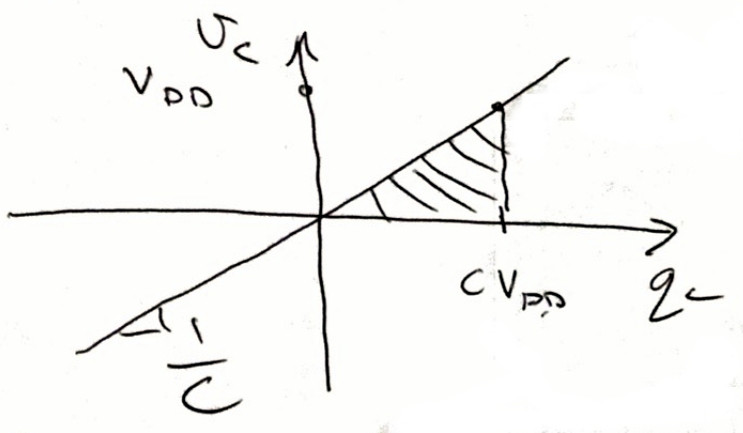 v_C
V_DD
CV_DD
q_C
1/C